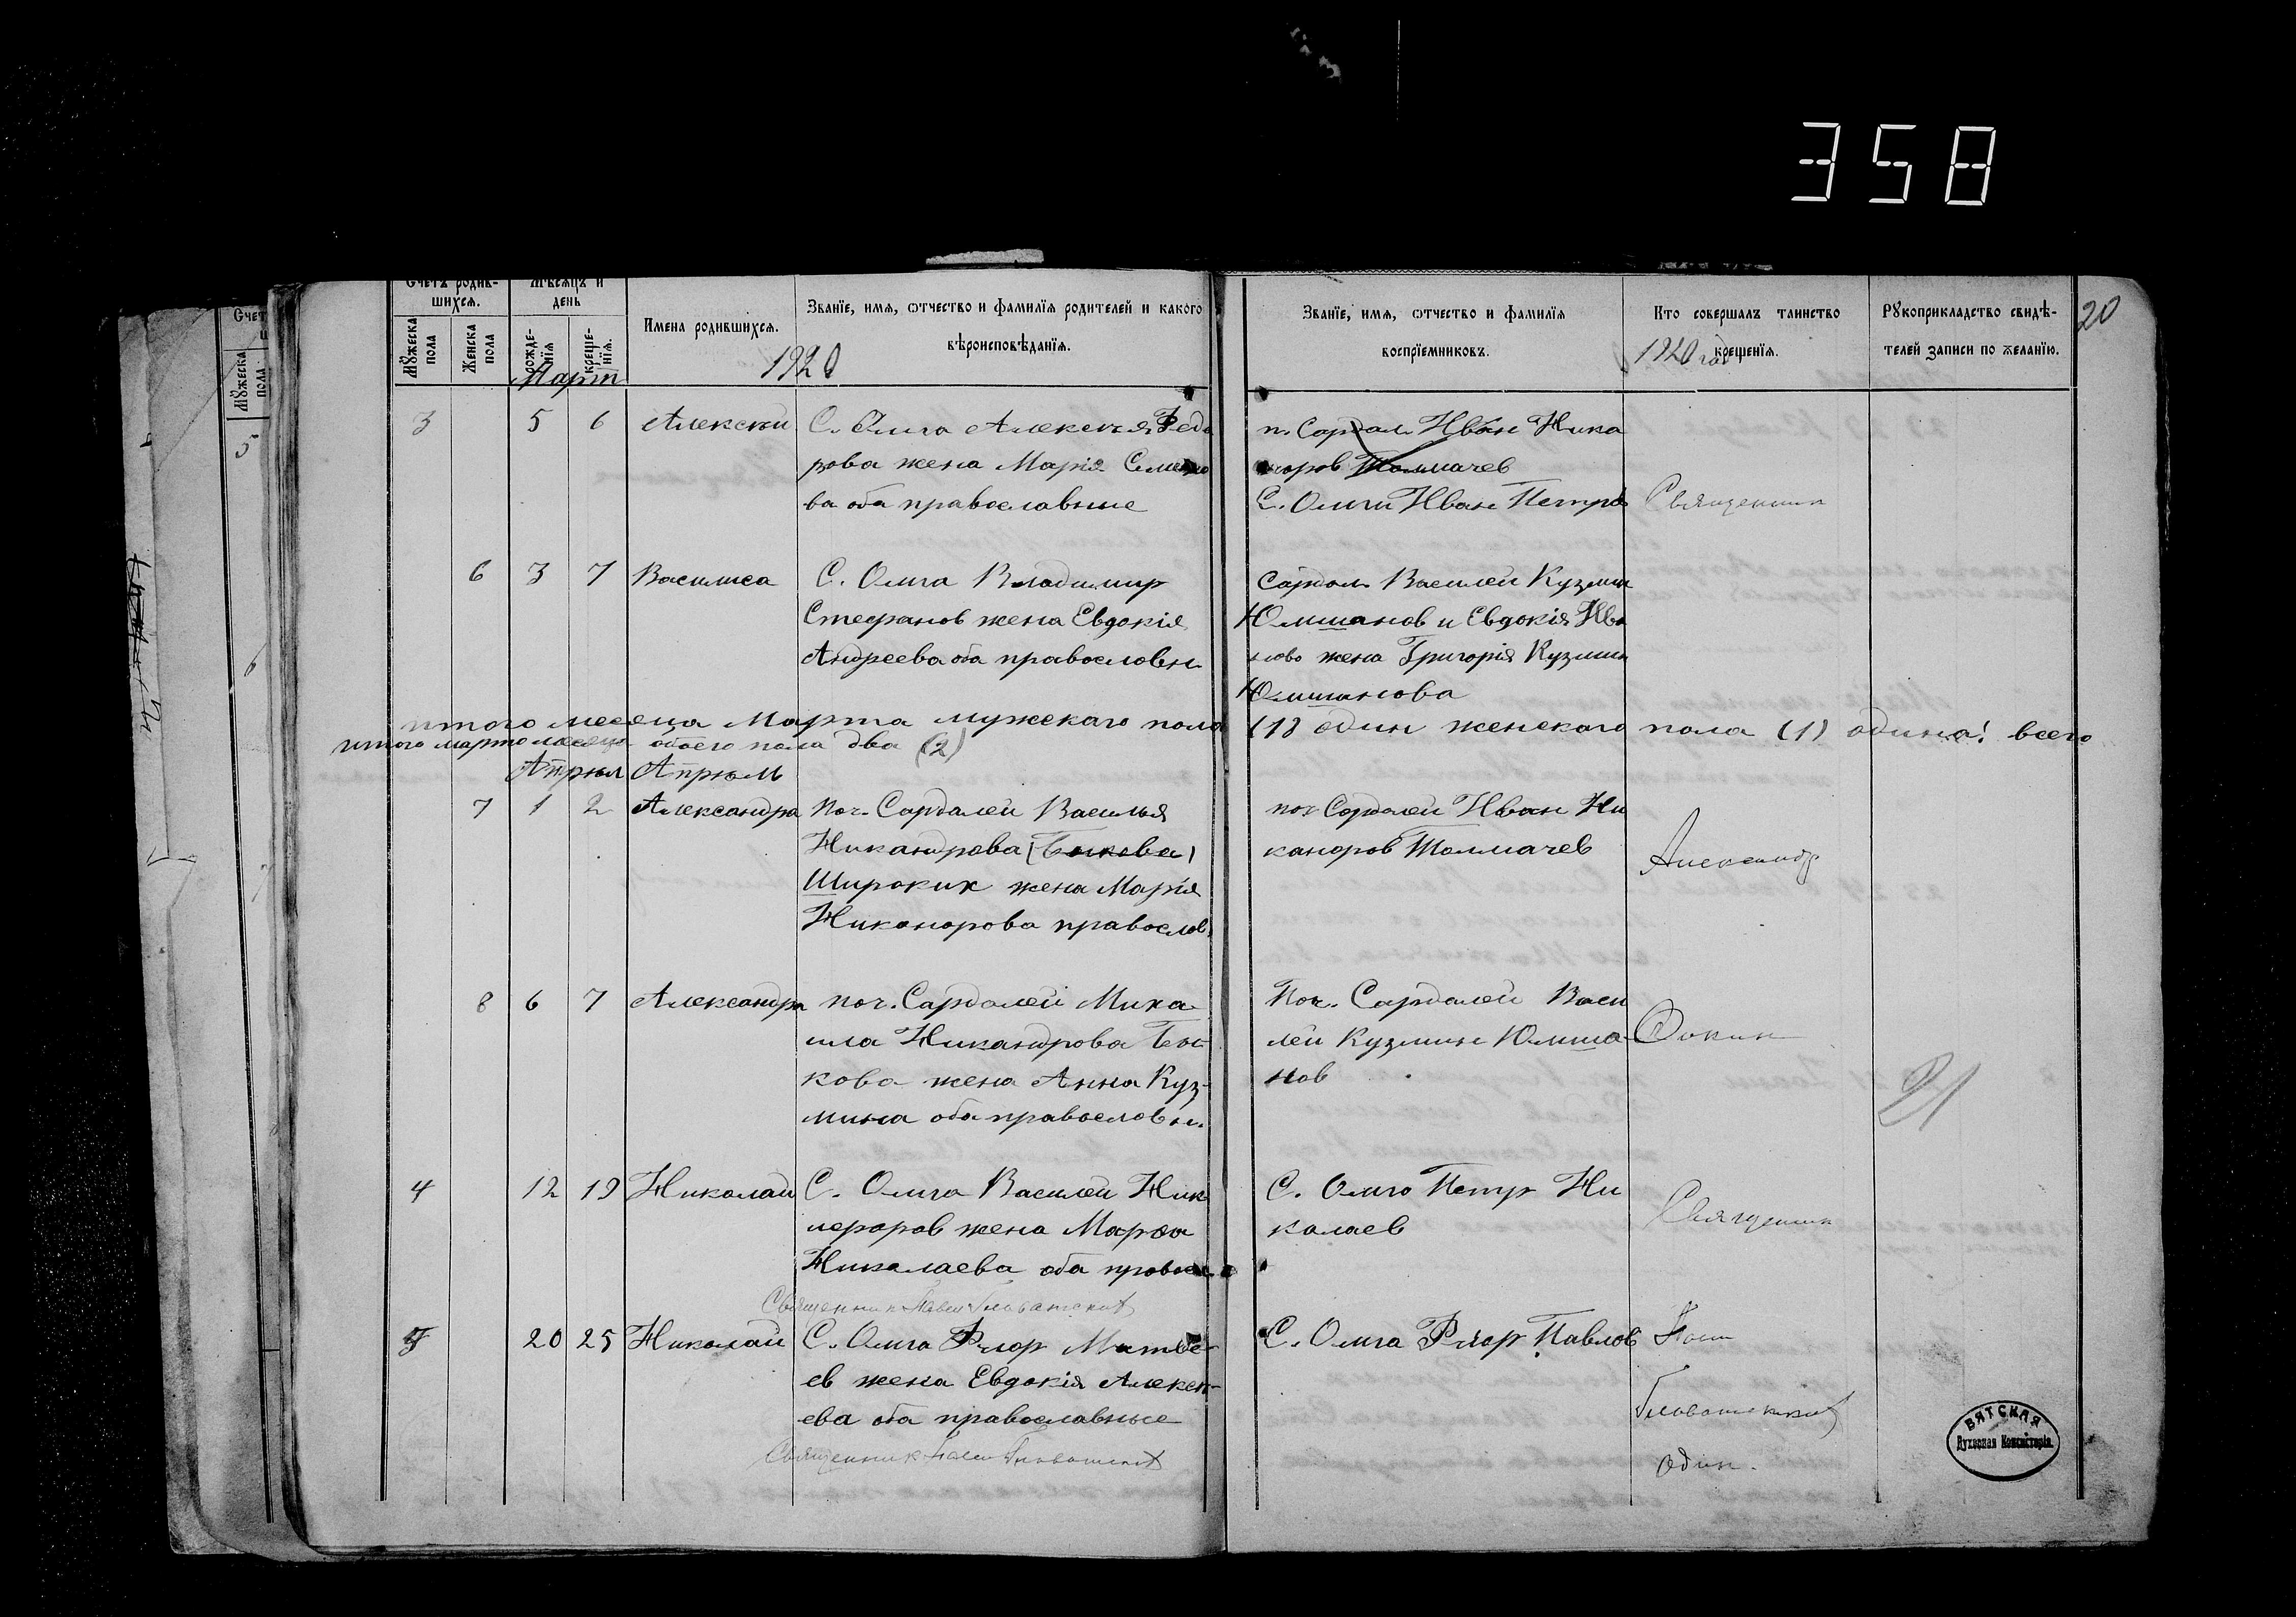 358
20
Счетъ родив-
шихся.
Мѣсяцъ и
день
Имена родившихся.
Званїе, имя, ѿтчество и фамилїя родителей и какого
вѣроисповѣданїя.
Званїе, имя, ѿтчество и фамилїя
воспрїемниковъ.
Кто совершалъ таинство
крещенїя.
Рꙋкоприкладство свидѣ-
телей записи по желанїю.
Мꙋжеска
пола
Женска
пола
рожде-
нїя
креще-
нїя.
1920
1920 год
Март
3 5 6 Алексѣй
С. Олыга Алексѣя Федо
рова жена Марія Семено
ва оба православные
п. Сардал. Иван Ника
норов Толмачев
С. Олыги Иван Петров
Священник
6 3 7 Васильса
С. Олыга Владимир
Стефанов жена Евдокія
Андреева оба православн
Сардал. Василей Кузмин
Юлшанов и Евдокія Ива
нова жена Григорія Кузмин
Юлшанова
итого месяца Марта мужскаго пола (1) один женскаго пола (1) одина! всего
итого марта месяца обоего пола два (2)
Апрѣл Апрѣль
7 1 2 Александра
поч. Сардалей Василья
Никандрова (Быкова)
Широких жена Марія
Никонорова православ.
поч Сардалей Иван Ни
каноров Толмачев
Александр
8 6 7 Александра
поч. Сардалей Миха
ила Никандрова Бы-
кова жена Анна Куз-
мина оба православн.
Поч. Сардалей Васи
лей Кузмин Юлша-
нов
21
4 12 19 Николай
С. Олыга Василей Ник
ифоров жена Марфа
Николаева оба правосл
С. Олыга Петр Ни
колаев
Священник
Священник
5 20 25 Николай
С. Олыга Флор Матве-
ев жена Евдокія Алексѣ-
ева оба православные
С. Олыга Флор Павлов
один.
Священник
ВЯТСКАЯ
Духовная Консисторія